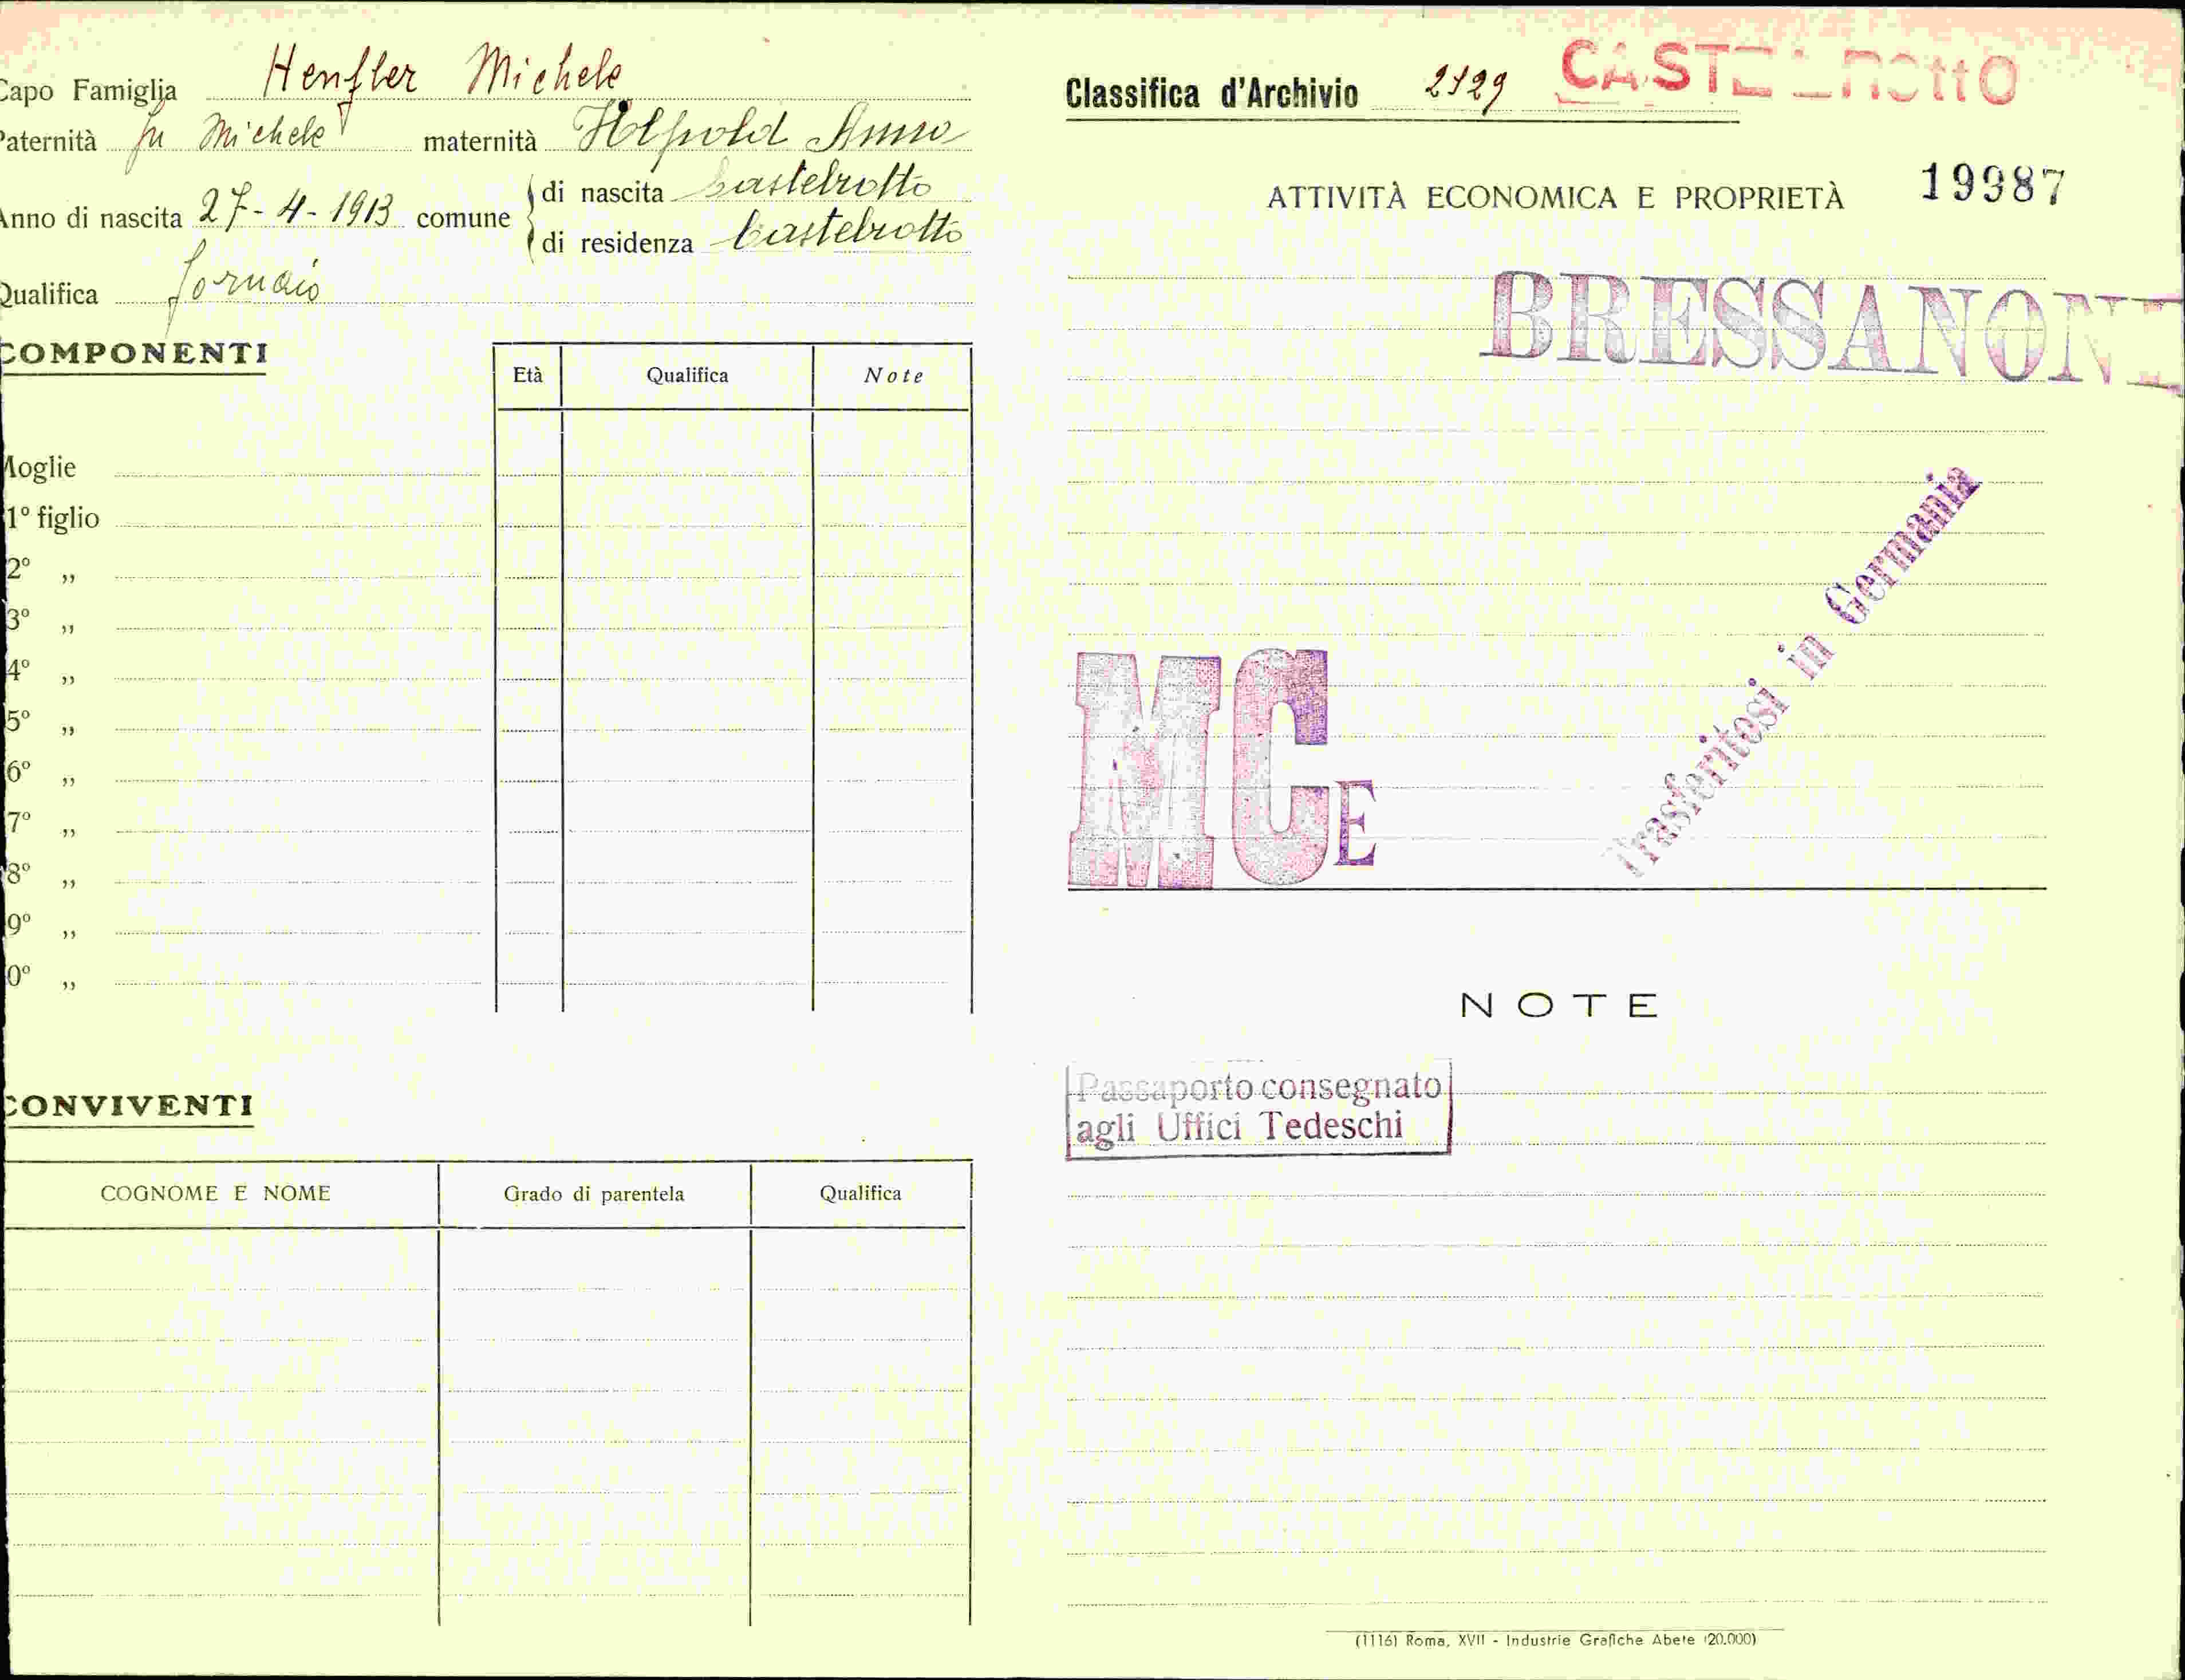 Capo Famiglia Henfler Michele
Paternità fu Michele maternità Holpold Anna
Anno di nascita 27-4-1913 comune di nascita Castelrotto
di residenza Castelrotto
Qualifica fornaio
COMPONENTI
Età Qualifica Note
Moglie
1º figlio
2º ,,
3º ,,
4º ,,
5º ,,
6º ,,
7º ,,
8º ,,
9º ,,
0º ,,
CONVIVENTI
COGNOME E NOME Grado di parentela Qualifica
Classifica d'Archivio 2129 CASTELROTTO
ATTIVITÀ ECONOMICA E PROPRIETÀ 19987
BRESSANONE
Trasferitosi in Germania
MCE
NOTE
Passaporto consegnato
agli Uffici Tedeschi
(1116) Roma, XVII - Industrie Grafiche Abete (20.000)